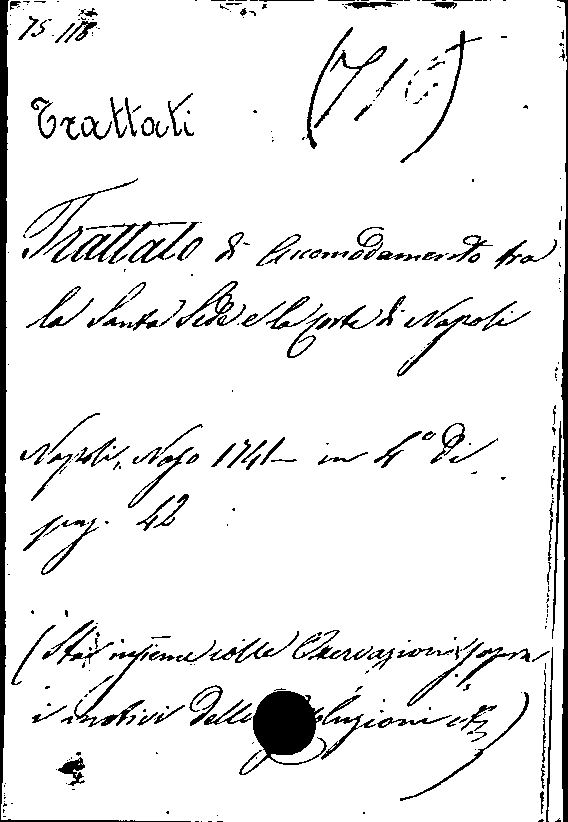 75 118
(716)
Trattati
Trattato di Accomodamento tra
la Santa Sede e la Corte di Napoli
Napoli, Naso 1741 in 4° Di
pag. 42
(Sta insieme colle Osservazioni sopra
i motivi delle